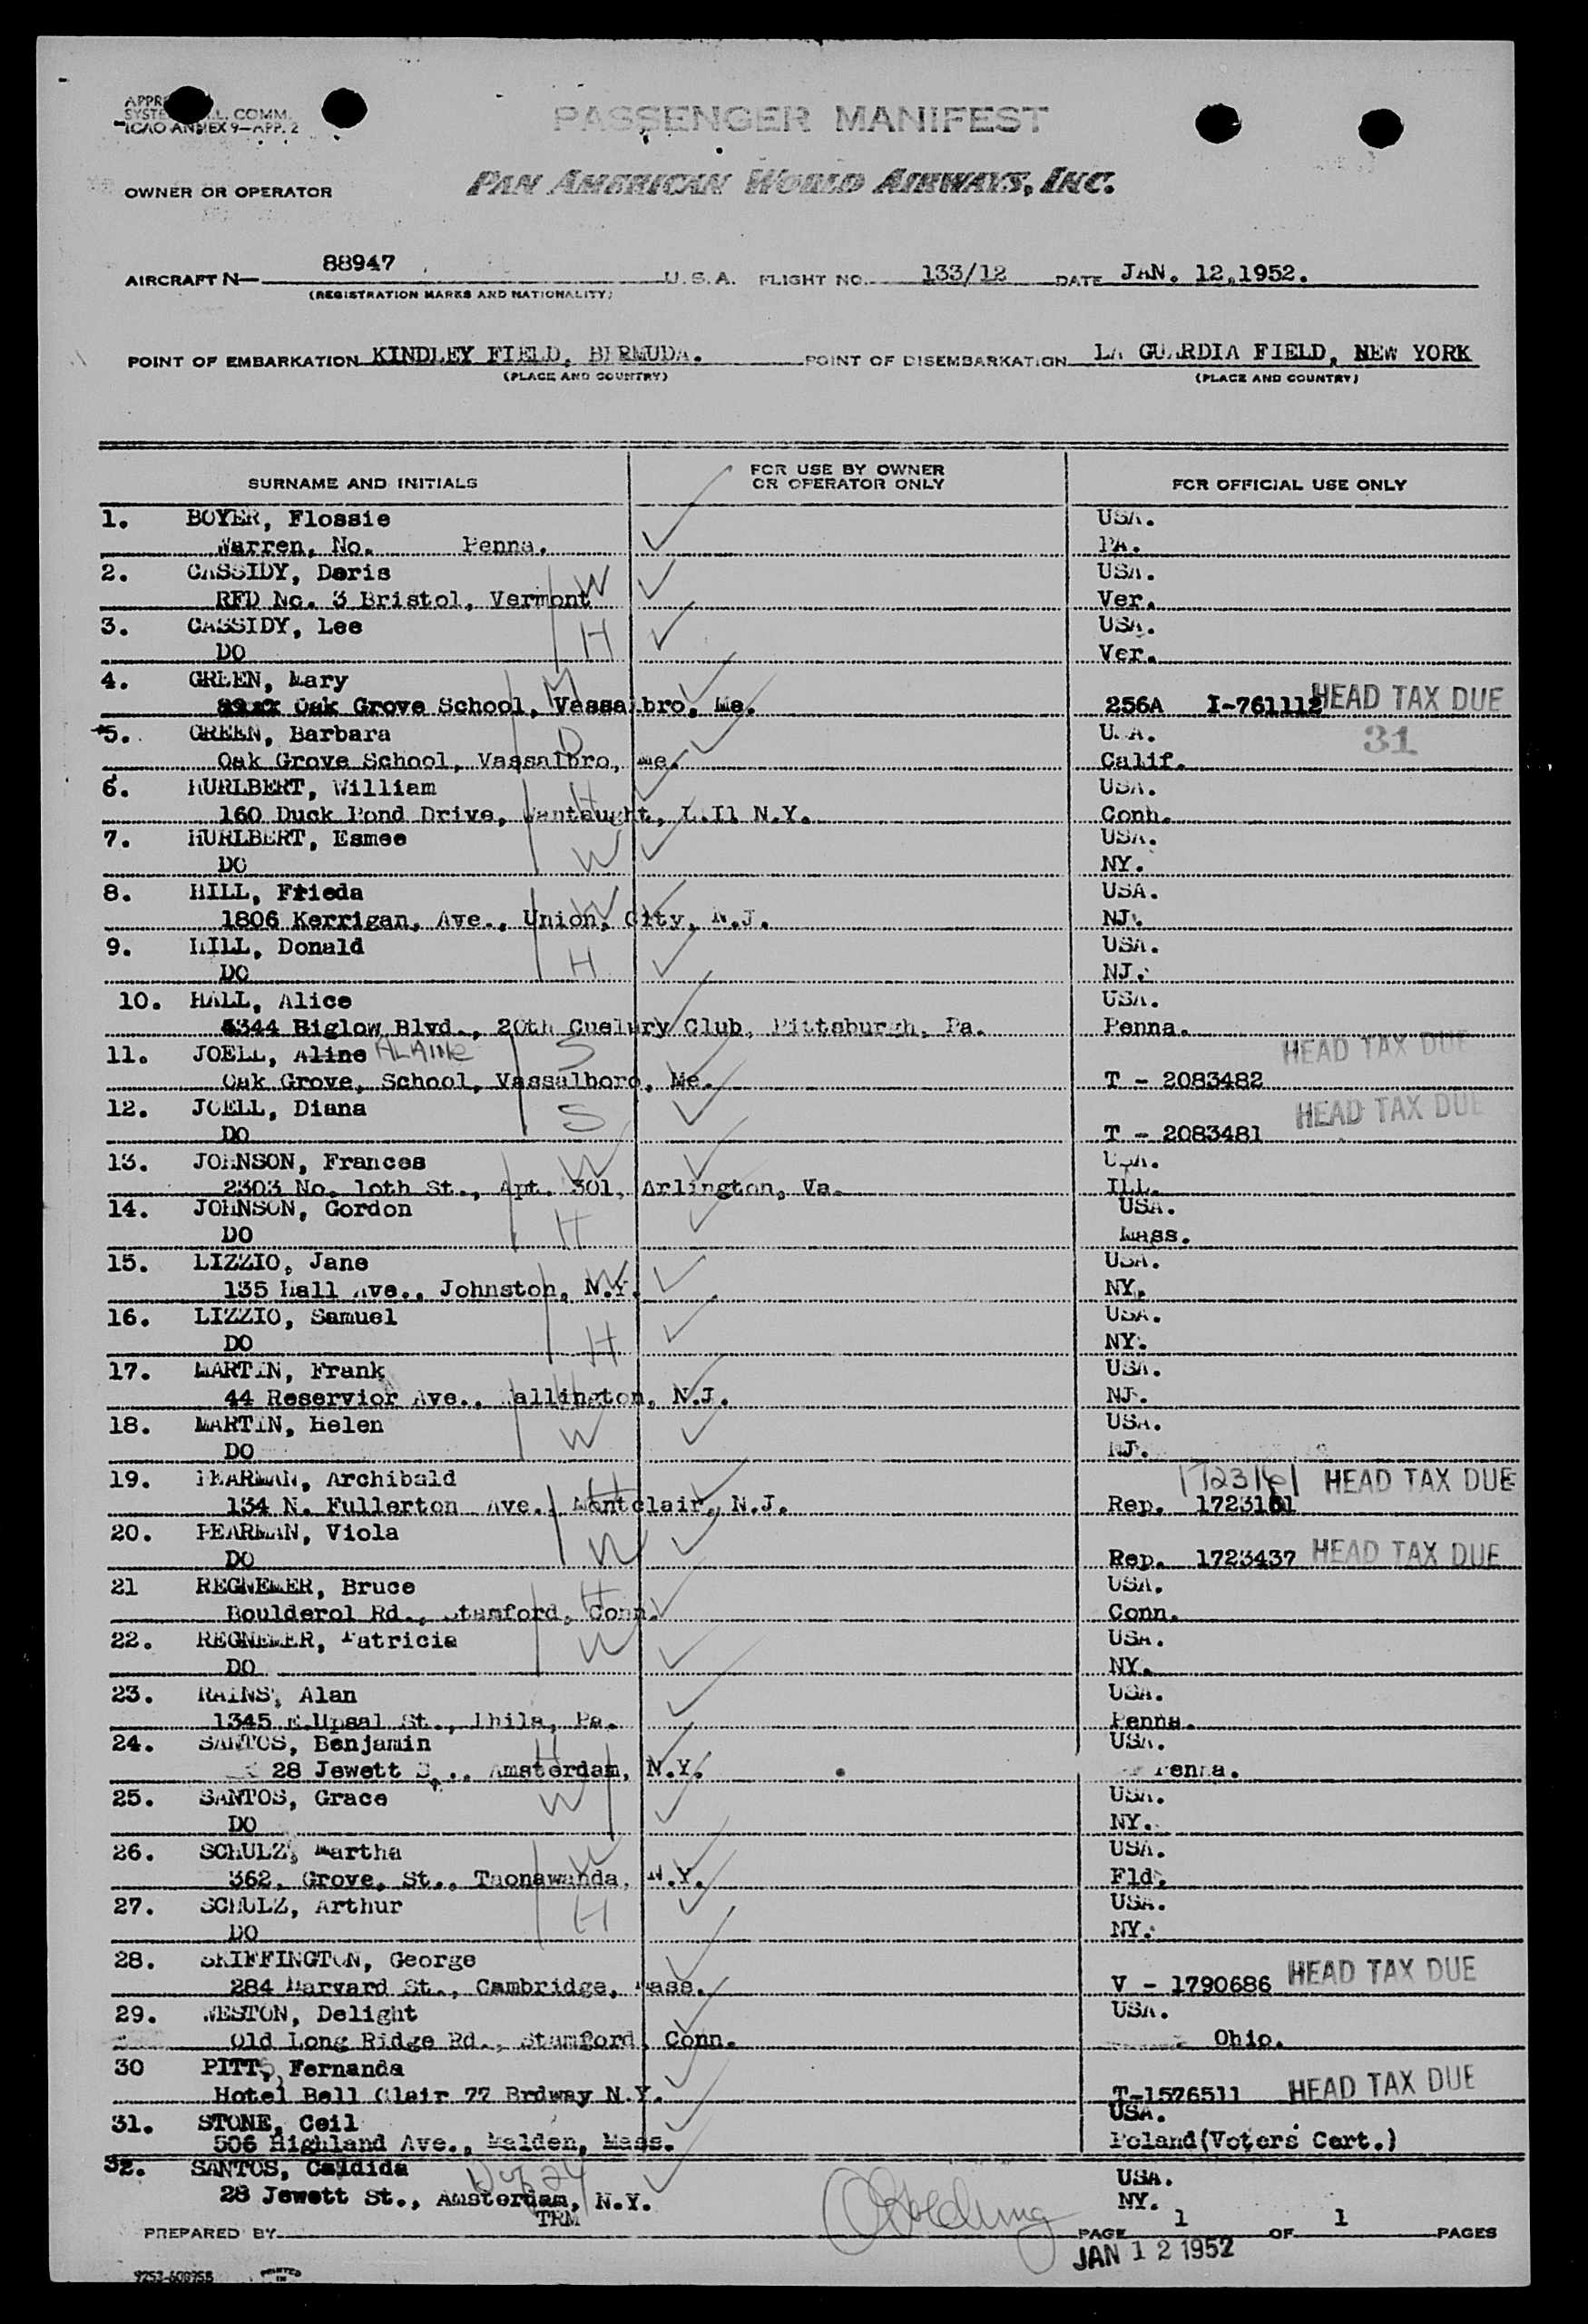 L. COMM.
ICAO ANNEX 9—APP. 2
PASSENGER MANIFEST
OWNER OR OPERATOR PAN AMERICAN WORLD AIRWAYS, INC.
AIRCRAFT N— 88947 U.S.A. FLIGHT NO. 133/12 DATE JAN. 12,1952.
(REGISTRATION MARKS AND NATIONALITY)
POINT OF EMBARKATION KINDLEY FIELD, BERMUDA. POINT OF DISEMBARKATION LA GUARDIA FIELD, NEW YORK
(PLACE AND COUNTRY) (PLACE AND COUNTRY)
SURNAME AND INITIALS FOR USE BY OWNER OR OPERATOR ONLY FOR OFFICIAL USE ONLY
1. BOYER, Flossie USA.
Warren, No. Penna. PA.
2. CASSIDY, Doris W USA.
RFD No. 3 Bristol, Vermont Ver.
3. CASSIDY, Lee H USA.
DO Ver.
4. GREEN, Mary M
Oak Grove School, Vassalbro, Me. 256A I-761112 HEAD TAX DUE
5. GREEN, Barbara D U.A. 31
Oak Grove School, Vassalbro, Me. Calif.
6. HURLBERT, William H USA.
160 Duck Pond Drive, Wantaught, L.Il N.Y. Conn.
7. HURLBERT, Esmee W USA.
DO NY.
8. HILL, Frieda W USA.
1806 Kerrigan, Ave., Union, City, N.J. NJ.
9. HILL, Donald H USA.
DO NJ.
10. HALL, Alice USA.
4344 Biglow Blvd., 20th Cuelury Club, Pittsburgh, Pa. Penna.
11. JOELL, Aline ALAINE S HEAD TAX DUE
Oak Grove, School, Vassalboro, Me. T - 2083482
12. JOELL, Diana S HEAD TAX DUE
DO T - 2083481
13. JOHNSON, Frances W USA.
2303 No. 10th St., Apt. 301, Arlington, Va. ILL.
14. JOHNSON, Gordon H USA.
DO Mass.
15. LIZZIO, Jane W USA.
135 Hall Ave., Johnston, N.Y. NY.
16. LIZZIO, Samuel H USA.
DO NY.
17. MARTIN, Frank H USA.
44 Reservior Ave., Wallington, N.J. NJ.
18. MARTIN, Helen W USA.
DO NJ.
19. PEARMAN, Archibald H 1723161 HEAD TAX DUE
134 N. Fullerton Ave., Montclair, N.J. Rep.
20. PEARMAN, Viola W
DO Rep. 1723437 HEAD TAX DUE
21 REGNEMER, Bruce H USA.
Boulderol Rd., Stamford, Conn. Conn.
22. REGNEMER, Patricia W USA.
DO NY.
23. RAINS, Alan USA.
1345 E.Upsal St., Phila, Pa. Penna.
24. SANTOS, Benjamin H USA.
28 Jewett S., Amsterdam, N.Y. Penna.
25. SANTOS, Grace W USA.
DO NY.
26. SCHULZ, Martha W USA.
362, Grove, St., Tnonawanda, N.Y. Fld.
27. SCHULZ, Arthur H USA.
DO NY.
28. SKIFFINGTON, George
284 Harvard St., Cambridge, Mass. V - 1790686 HEAD TAX DUE
29. WESTON, Delight USA.
Old Long Ridge Rd., Stamford, Conn. Ohio.
30 PITTS, Fernanda
Hotel Bell Clair 77 Brdway N.Y. T-1576511 HEAD TAX DUE
31. STONE, Ceil USA.
506 Highland Ave., Malden, Mass. Poland(Voters Cert.)
32. SANTOS, Candida USA.
28 Jewett St., Amsterdam, N.Y. NY.
TRM
PREPARED BY PAGE 1 OF 1 PAGES
JAN 12 1952
PRINTED
IN